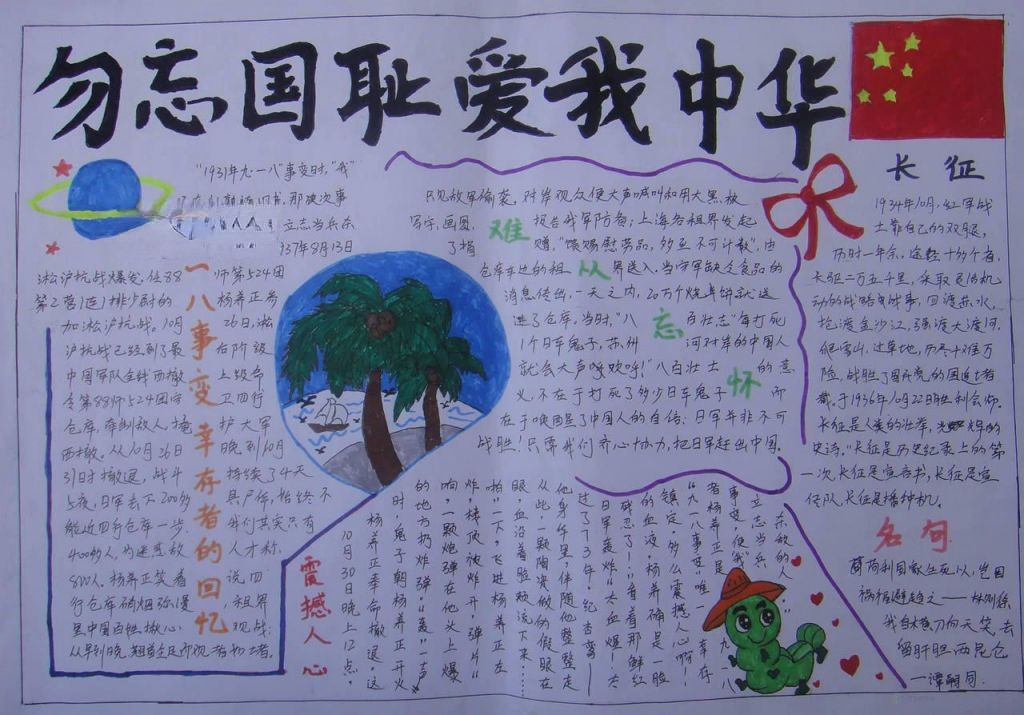 勿忘国耻爱我中华
"1931年九·一八"事变时,"我"
那被次事
立志当兵杀
1937年8月13日
淞沪抗战爆发,任88
师第524团
第2营1连1排少尉的
杨养正参
加淞沪抗战,10月
26日,淞
沪抗战已经到了最
后阶段
中国军队全线西撤
上级命
令第88师524团守
卫四行
仓库,牵制敌人,掩
护大军
西撤,从10月26日
晚到10月
31日时撤退,战斗
持续了4天
5夜,日军丢下200多
具尸体,始终不
能近四行仓库一步
我们其实只有
400多人,为迷惑敌
人才称
800人.杨养正笑着
说.四
行仓库硝烟弥漫
租界
里中国百姓揪心
观战
一八事变幸存者的回忆
难从忘怀
只见敌军偷袭,对岸观众便大声喊叫和用大黑板
写字,画图
报告我军防务;上海各租界发起
了捐
赠,"馈赐慰劳品,多至不可计数",由
仓库车边的租
界送入.当守军缺乏食品的
消息传出,一天之内,20万个烧卖饼就送
进了仓库,当时,"八
百壮志"每打死
1个日军鬼子,苏州
河对岸的中国人
就会大声呼欢呼!八百壮士
的意
义,不在于打死了多少日军鬼子
所
在于唤回了中国人的自信:日军并非不可
战胜!只要我们齐心协力,把日军赶出中国.
长征
1934年10月,红军战
士靠自己的双腿,
历时一年余,途经十多个省
长驱二万五千里,采取灵活机
动的战略战事,四渡赤水,
抢渡金沙江,强渡大渡河,
爬雪山,过草地,历尽千难万
险,战胜了国民党的围追堵
截.于1936年10月22日胜利会师.
长征是人类的壮举,
史诗."长征是历史纪录上的第
一次,长征是宣言书,长征是宣
传队,长征是播种机.
名句
苟利国家生死以,岂因
祸福避趋之——林则徐
我自横刀向天笑,去
留肝胆两昆仑
—谭嗣同
震撼人心
东敌的人
立志当兵
事变,使"我"
者杨养正是
"九一八事变"唯一幸存
镇定,多么震撼人心啊!
的血液,杨养确是一脸
残忍了!"看着那鲜红
日军轰炸"大血爆!太
过了73年,
他身千里,伴随他整整走
从此,一颗陶瓷做的假眼在
眼,血沿着脸颊流下来…
啪"一下,飞进杨养正左
炸,楼顶被炸开,弹片"
响,一颗炮弹在他头上爆
的地方扔炸弹."轰"一声
时,鬼子朝杨养正开火
杨养正奉命撤退这
10月30日晚上12点,